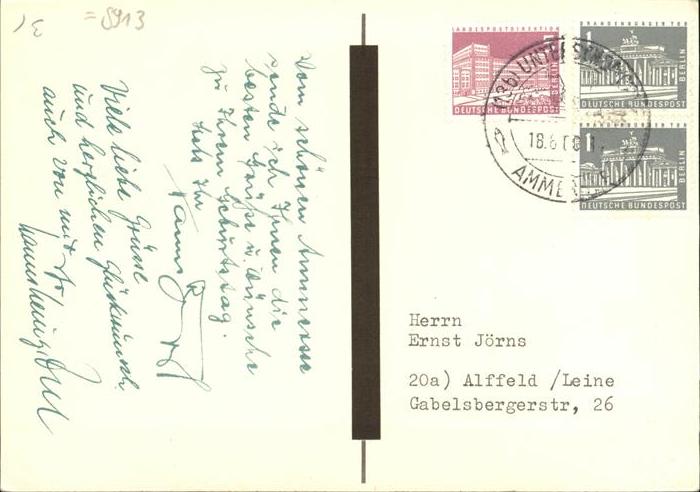 = 8913
Vom schönen Ammersee
sende ich Ihnen die
besten Grüße u. Wünsche
zu Ihrem Geburtstag.
Stets Ihr
Hans
Viele liebe Grüße
und herzlichen Glückwunsch
auch von mit
LANDESPOSTDIREKTION
7
BERLIN
DEUTSCHE BUNDESPOST
BRANDENBURGER TOR
1
BERLIN
DEUTSCHE BUNDESPOST
BRANDENBURGER TOR
1
BERLIN
DEUTSCHE BUNDESPOST
18.6
AMMERSEE
Herrn
Ernst Jörns
20a) Alffeld /Leine
Gabelsbergerstr, 26